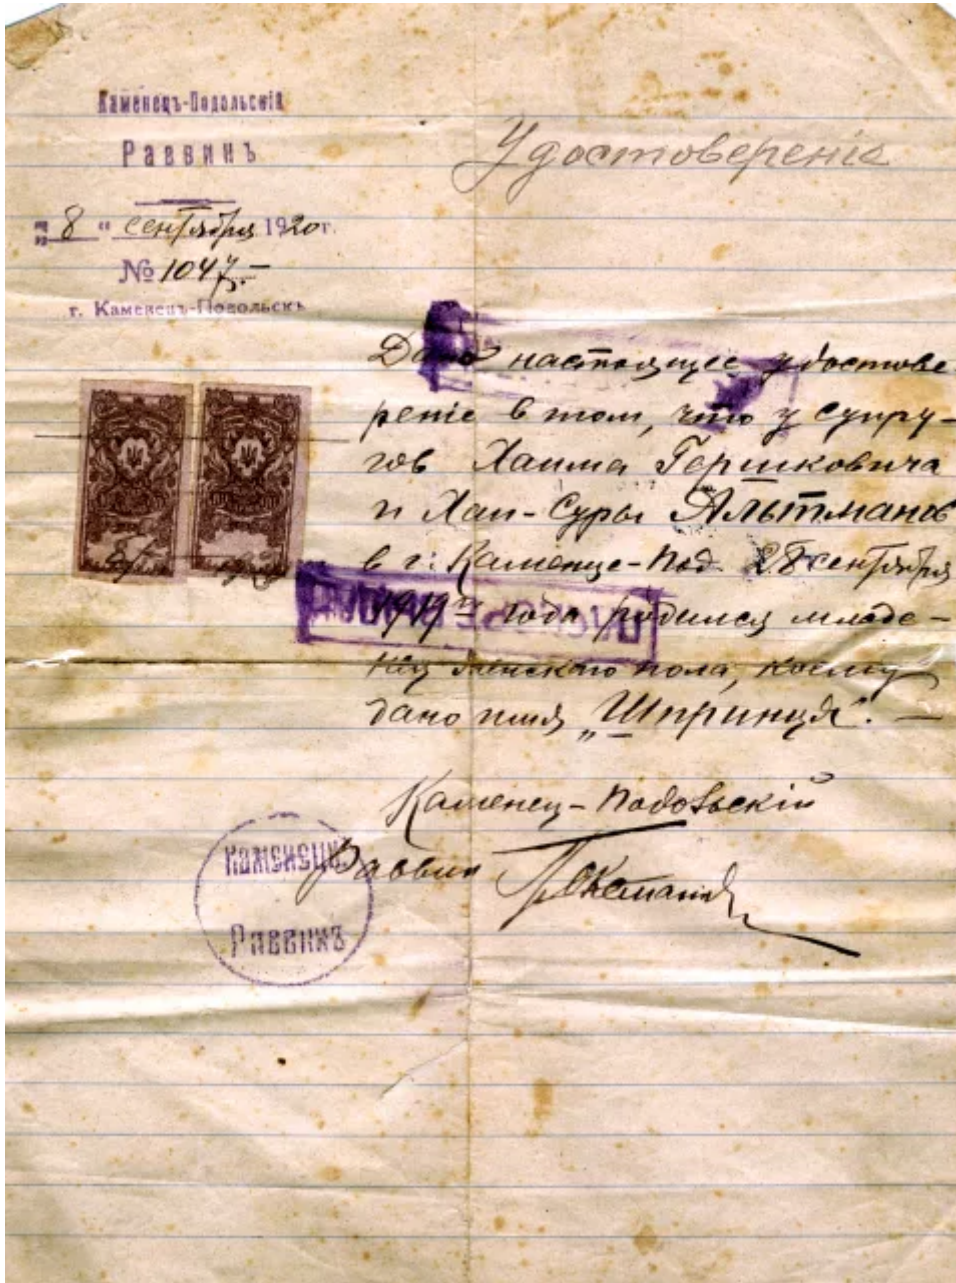 Каменецъ-Подольскій
Раввинъ
"8" сентября 1920 г.
№ 1047.-
г. Каменецъ-Подольскъ
Удостоверение
Дано настоящее удостове
рение в том, что у супру-
гов Хаима Гершковича
и Хаи-Суры Альтманов
в г. Каменце-Под. 28 сентября
1919 года родился младе-
нец женского пола, коему
дано имя „Шпринця". —
Каменец-Подольскій
Раввин
Каменецъ
Раввинъ